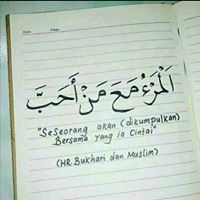 Date Page
اَلْمَرْءُ مَعَ مَنْ أَحَبَّ
"Seseorang akan (dikumpulkan)
Bersama yang ia Cintai"
(HR. Bukhari dan Muslim)